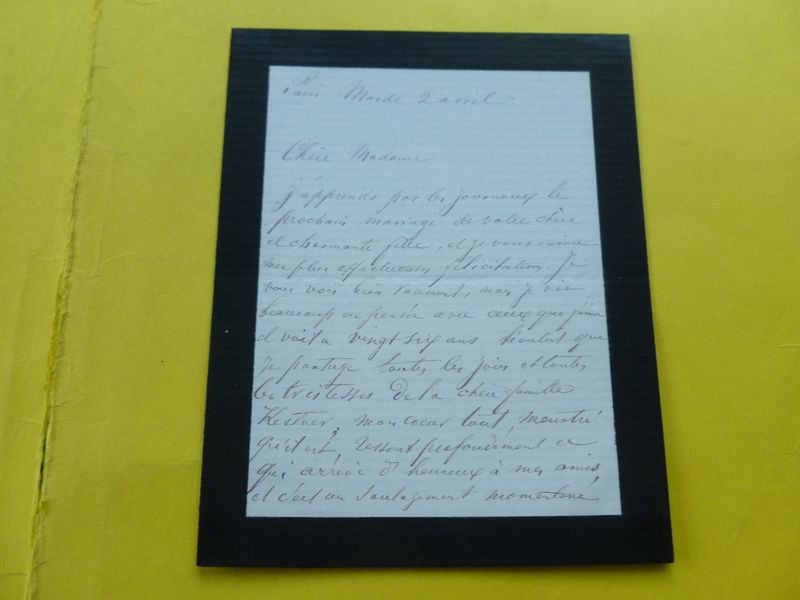 Paris Mardi 2 avril
Chère Madame
J'apprends par les journaux le
prochain mariage de votre chère
et charmante fille, et je vous envoie
mes plus affectueuses félicitations. Je
vous vois bien rarement, mais je vis
beaucoup en pensée avec ceux que j'aime
et voilà vingt-six ans bientôt que
je partage toutes les joies et toutes
les tristesses de la chère famille
Kestner, mon coeur tout meurtri
qu'il est, ressent profondément ce
qui arrive d'heureux à mes amis,
et c'est un soulagement momentané